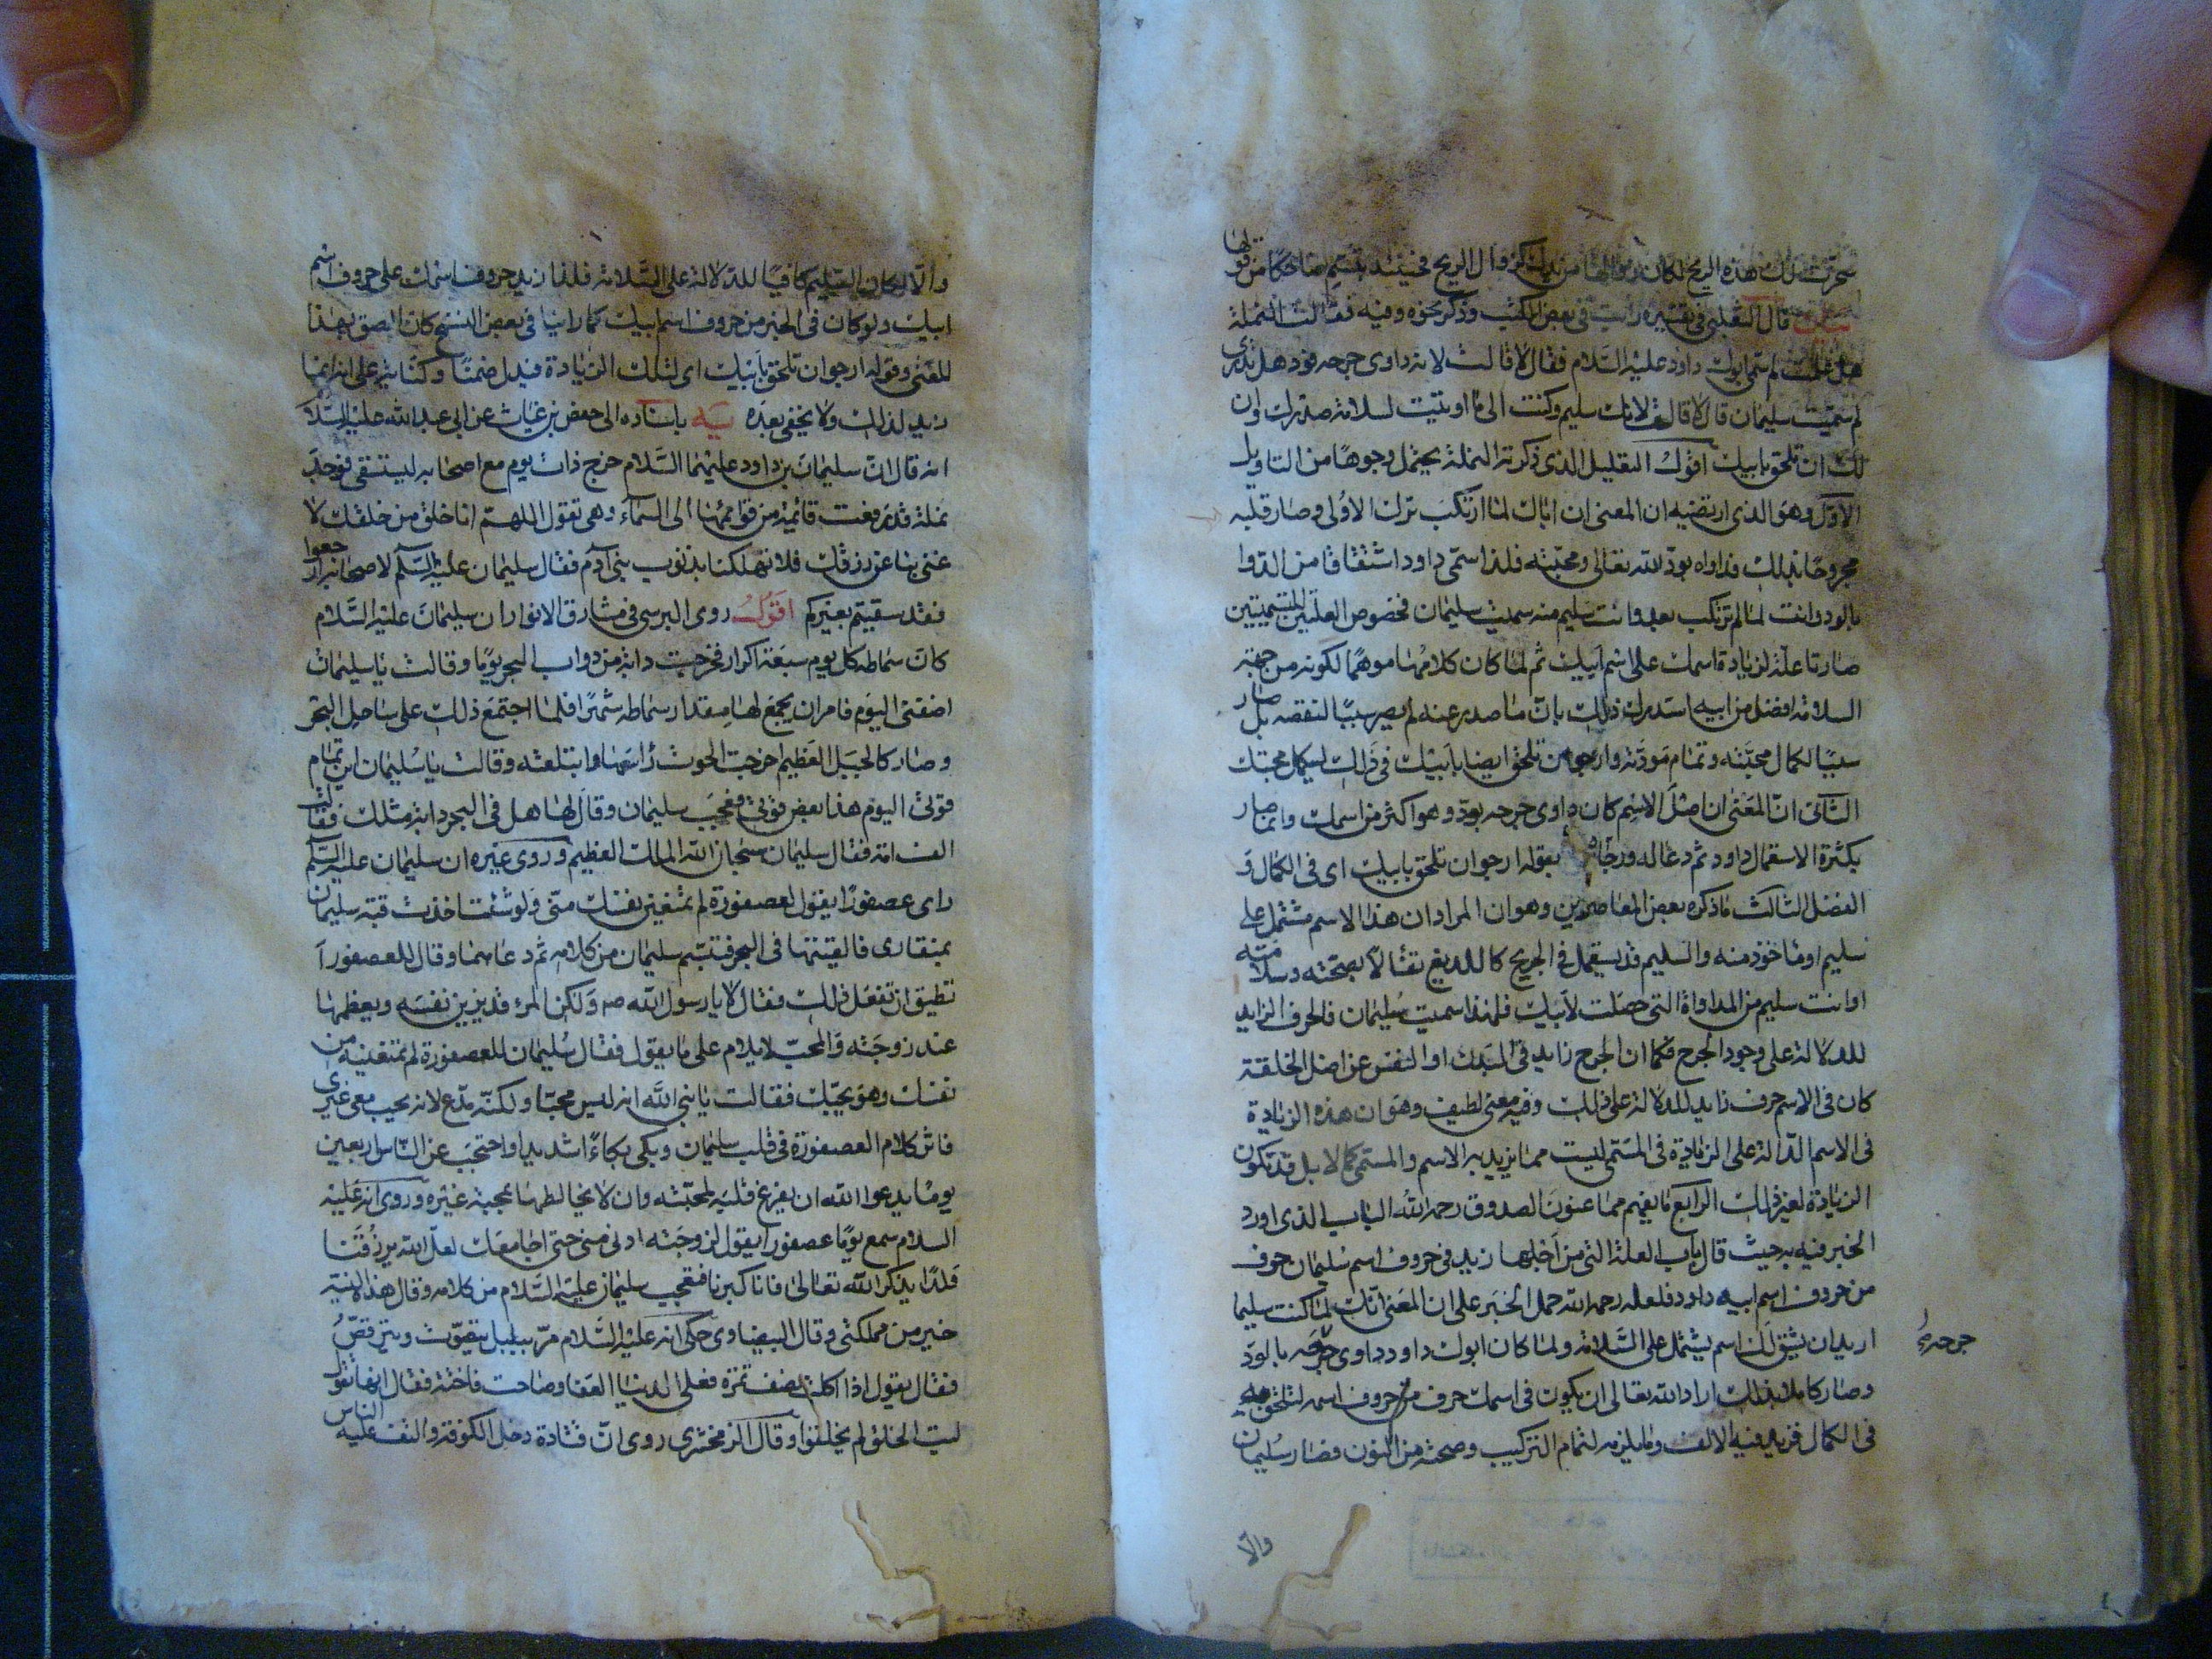 سخرت لك هذه الريح لكان زوالها من يدك كزوال الريح فحينئذ تبسم ضاحكا من قولها
بيان قال الثعلبي في تفسيره رأيت في بعض الكتب وذكر نحوه وفيه فقالت النملة
هل علمت لم سمي ابوك داود عليه السلام فقال لا قالت لانه داوى جرحه بود هل تدرى
لم سميت سليمان قال لا قالت لانك سليم وكنت الى ما اوتيت لسلامة صدرك وان
لك ان تلحق بابيك اقول التعليل الذى ذكرته النملة يحتمل وجوها من التاويل
الاول وهو الذى ارتضيه ان المعنى ان اباك لما ارتكب ترك الاولى وصار قلبه
مجروحا بذلك فداواه بود الله تعالى ومحبته فلذا سمى داود اشتقاقا من الدوا
بالود وانت لما لم ترتكب بعد وانت سليم منه سميت سليمان فخصوص العلتين للتسميتين
صارتا علة لزيادة اسمك على اسم ابيك ثم لما كان كلامها موهما لكونه من جهة
السلامة افضل من ابيه استدرك ذلك بان ما صدر عنه لم يصر سببا لنقصه بل صار
سببا لكمال محبته وتمام مودته وارجو ان تلحق ايضا بابيك في ذلك ليكمل محبتك
الثاني ان المعنى ان اصل الاسم كان داوى جرحه بود وهو اكثر من اسمك وانما صار
بكثرة الاستعمال داود ثم دعا له ورجاه بقوله ارجو ان تلحق بابيك اى في الكمال و
الفضل الثالث ما ذكره بعض المعاصرين وهو ان المراد ان هذا الاسم مشتمل على
سليم او ماخوذ منه والسليم قد يستعمل في الجريح كاللديغ تفالا بصحته وسلامته
او انت سليم من المداواة التي حصلت لابيك فلهذا سميت سليمان فالحرف الزايد
للدلالة على وجود الجرح فكما ان الجرح زايد في البدن او النفس عن اصل الخلقة
كان في الاسم حرف زايد للدلالة على ذلك وفيه معنى لطيف وهو ان هذه الزيادة
في الاسم الدالة على الزيادة في المسمى ليست مما يزيد به الاسم والمسمى كمالا بل قد تكون
الزيادة لغير ذلك الرابع ما يفهم مما عنون الصدوق رحمه الله الباب الذى اورد
الخبر فيه به حيث قال باب العلة التي من اجلها زيد في حروف اسم سليمان حرف
من حروف اسم ابيه داود فلعله رحمه الله حمل الخبر على ان المعنى انك لما كنت سليما
اريد ان يشتق لك اسم يشتمل على السلامة ولما كان ابوك داود داوى جرحه بالود
جرحه
وصار كاملا بذلك اراد الله تعالى ان يكون في اسمك حرف من حروف اسمه لتلحق به
في الكمال فزيد فيه الالف وما يلزمه لتمام التركيب وصحته من النون فصار سليمان
والا
والا لكان السليم كافيا للدلالة على السلامة فلذا زيد حروف اسمك على حروف اسم
ابيك ولو كان في الخبر من حروف اسم ابيك كما راينا في بعض النسخ كان الصق بهذا
المعنى وقوله ارجو ان تلحق بابيك اى لتلك الزيادة فيدل ضمنا وكناية على انه انما
زيد لذلك ولا يخفى بعده يه باسناده الى حفص بن غياث عن ابى عبد الله عليه السلا
انه قال ان سليمان بن داود عليهما السلام خرج ذات يوم مع اصحابه ليستسقى فوجد
نملة قد رفعت قائمة من قوائمها الى السماء وهى تقول اللهم انا خلق من خلقك لا
غنى بنا عن رزقك فلا تهلكنا بذنوب بنى آدم فقال سليمان عليه السلم لاصحابه ارجعوا
فقد سقيتم بغيركم اقول روى البرسي في مشارق الانوار ان سليمان عليه السلام
كان سماطه كل يوم سبعة اكرار فخرجت دابة من دواب البحر يوما وقالت يا سليمان
اضفني اليوم فامر ان يجمع لها مقدار سماطه شهرا فلما اجتمع ذلك على ساحل البحر
وصار كالجبل العظيم اخرجت الحوت راسها وابتلعته وقالت يا سليمان اين تمام
قوتى اليوم هذا بعض قوتى فعجب سليمان وقال لها هل في البحر دابة مثلك فقالت
الف امة فقال سليمان سبحان الله الملك العظيم وروى غيره ان سليمان عليه السلم
راى عصفورا يقول لعصفورة لم تمنعين نفسك منى ولو شئت اخذت قبة سليمان
بمنقارى فالقيتها في البحر فتبسم سليمان من كلامه ثم دعاهما وقال للعصفور أ
تطيق ان تفعل ذلك فقال لا يا رسول الله ص ولكن المرء قد يزين نفسه ويعظمها
عند زوجته والمحب لا يلام على ما يقول فقال سليمان للعصفورة لم تمنعينه من
نفسك وهو يحبك فقالت يا نبى الله انه ليس محبا ولكنه مدع لانه يحب معى غيرى
فاثر كلام العصفورة في قلب سليمان وبكى بكاء شديدا واحتجب عن الناس اربعين
يوما يدعو الله ان يفرغ قلبه لمحبته وان لا يخالطها بمحبة غيره وروى انه عليه
السلام سمع يوما عصفورا يقول لزوجته ادنى منى حتى اجامعك لعل الله يرزقنا
ولدا يذكر الله تعالى فانا كبرنا فتعجب سليمان عليه السلام من كلامه وقال هذا النية
خير من مملكتى وقال البيضاوى حكى انه عليه السلام مر ببلبل يتصوت ويترقص
فقال يقول اذا اكلت نصف تمرة فعلى الدنيا العفا وصاحت فاختة فقال انها تقول
ليت الخلق لم يخلقوا وقال الزمخشرى روى ان قتادة دخل الكوفة والتف عليه الناس